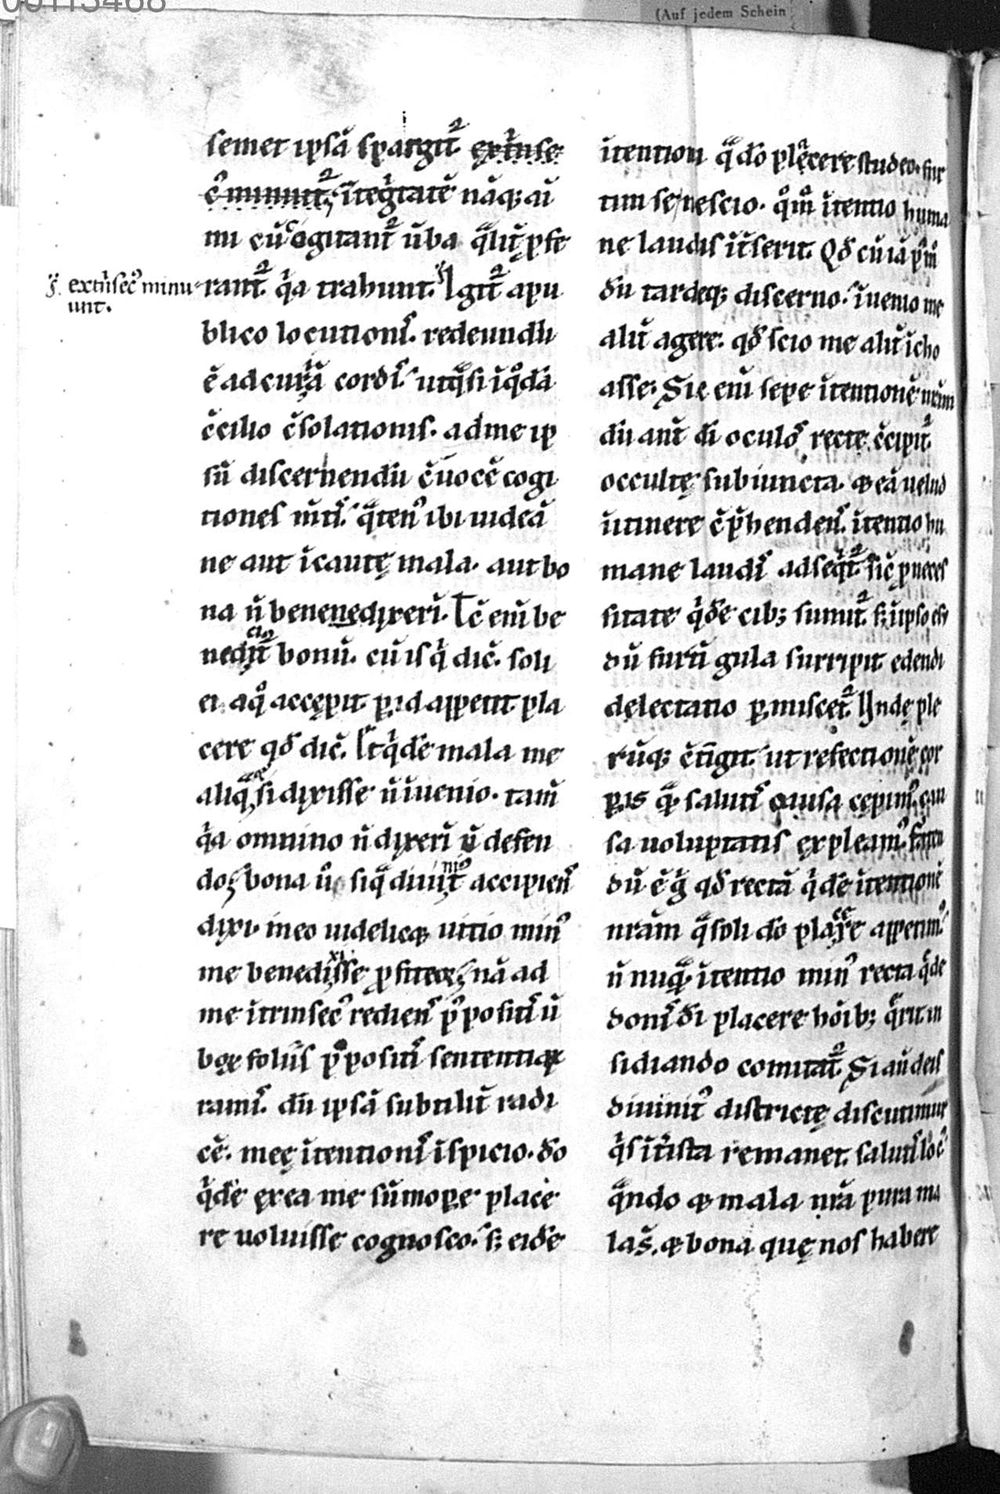 00113468
(Auf jedem Schein
semet ipsā spargit᷑ ext̾nse
c᷒ minuit᷑, ītegͥtatē nāq; ai
mi cū cogitant᷑ ūba qͣlit᷑ ꝓfe
rant᷑ qͥa trahunt. Igit᷑ a pu
ꝭ. extͥnsec᷒ minu
unt.
blico locutioniſ. redeundū
ē ad curiā cordiſ. ut qͣsi ī qͦdā
c̄cilio c̄solationis. ad me ip
sū discernendū c̄uocē cogi
tiones m̄tiſ. qͣten᷒ ibi uideā
ne aut īcautę mala. aut bo
na ñ bene dixerī. Tc̄ enī be
ne dicit᷑ bonū. cū is qͥ dic̄. soli
ei a qͦ accępit ꝑ id appetit pla
cere qđ dic̄. Et qͥdē mala me
aliqͣ & si dixisse ñ īuenio. tam̄
qͥa omnino ñ dixerī ñ defen
do; bona ū siqͣ diuinit᷒ accipienſ
dixi. meo uidelicet uitio min᷒
me bene dixisse ꝓfiteor; nā ad
me ītrinsec᷒ redienſ ꝓpositiſ ū
boꝝ foliis ꝓpositiſ sententiaꝝ
ramiſ. dū ipsā subtilit᷑ radi
cē. meę ītentioniſ īspicio. do
qͥdē ex ea me sūmopere place
re uoluisse cognosco. s; eidē
ītentioni qͣ dō placere studeo. fur
tim se nescio. qͦm̄ ītentio huma
ne laudis īt̄serit. Qđ cū iā pͦm̄
dū tardeq; discerno. īuenio me
alit᷑ agere. qđ scio me alit᷑ īcho
asse. Sic enī sepe ītentionē nr̄am
dū ant̄ dī oculoſ recte c̄cipit᷑
occultę subiuncta. & eā uelud
ītinere c̄pͥhendenſ. ītentio hu
mane laudiſ adseqͥt᷑. sic̄ ꝓ neces
sitate qͥdē cib; sumit᷑. s; ī ipso esu
dū furtī gula surripit edendi
dęlectatio ꝑmiscet᷑. Undę ple
rūq; c̄tīgit. ut refectionē cor
poris qͣ salutiſ causa cępim᷒. cau
sa uoluptatis expleam᷒. Faten
dū ē g̊ qđ rectā qͥdē ītentionē
nr̄am qͣ soli dō placere appetim᷒.
ñ nuqͣ ītentio min᷒ recta qͣ de
doniſ dī placere hoīb; qͣrit in
sidiando comitat᷑. Si aū de is
diuinit᷒ districtę discutimur
qͥs īt̄ ista remanet salutiſ loc᷒
qͣndo & mala nr̄a pura ma
la s̄. & bona quę nos habere